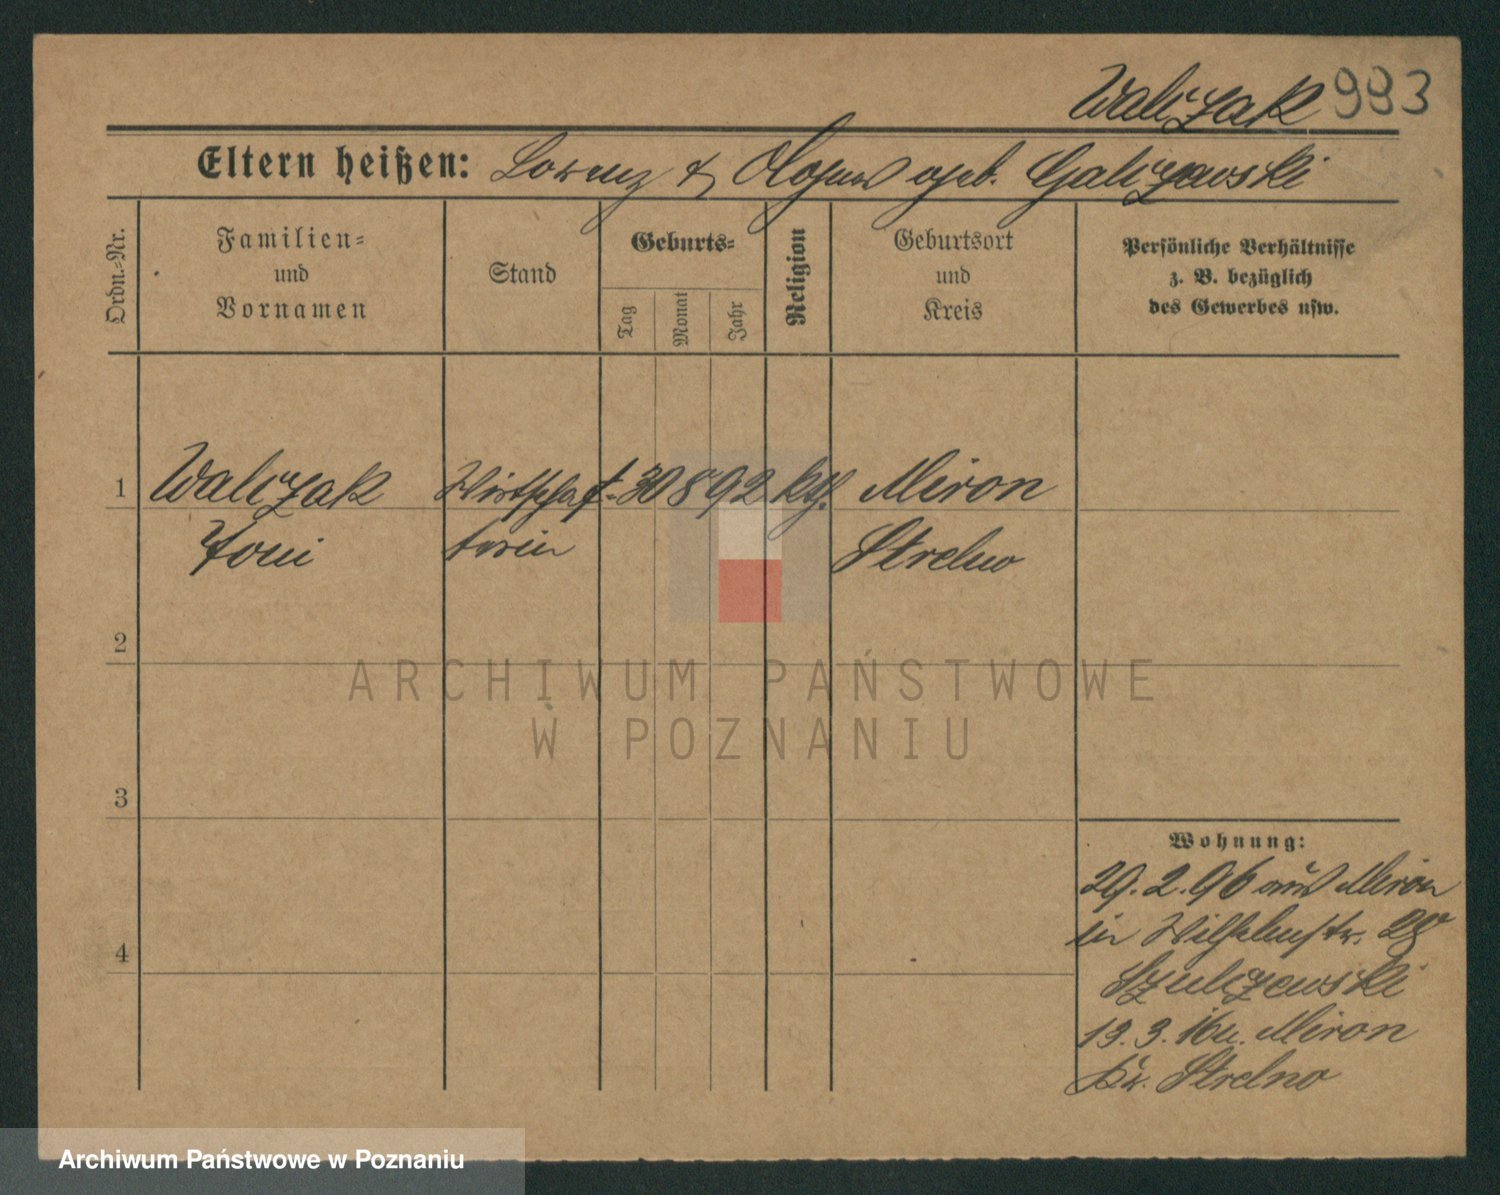 Walczak 993
Eltern heißen: Lorenz & geb. Galczewski
Ordn.-Nr.
Familien-
und
Vornamen
Stand
Geburts-
Tag
Monat
Jahr
Religion
Geburtsort
und
Kreis
Persönliche Verhältnisse
z. B. bezüglich
des Gewerbes usw.
1 Walczak Wirtschaf- 30 8 92 kth. Miron
Toni terin Strelno
2
3
4
Wohnung:
29. 2. 96 aus Miron
in Wilhelmstr. 28
Szulczewski
13. 3. 16 n. Miron
Kr. Strelno
ARCHIWUM PAŃSTWOWE
W POZNANIU
Archiwum Państwowe w Poznaniu